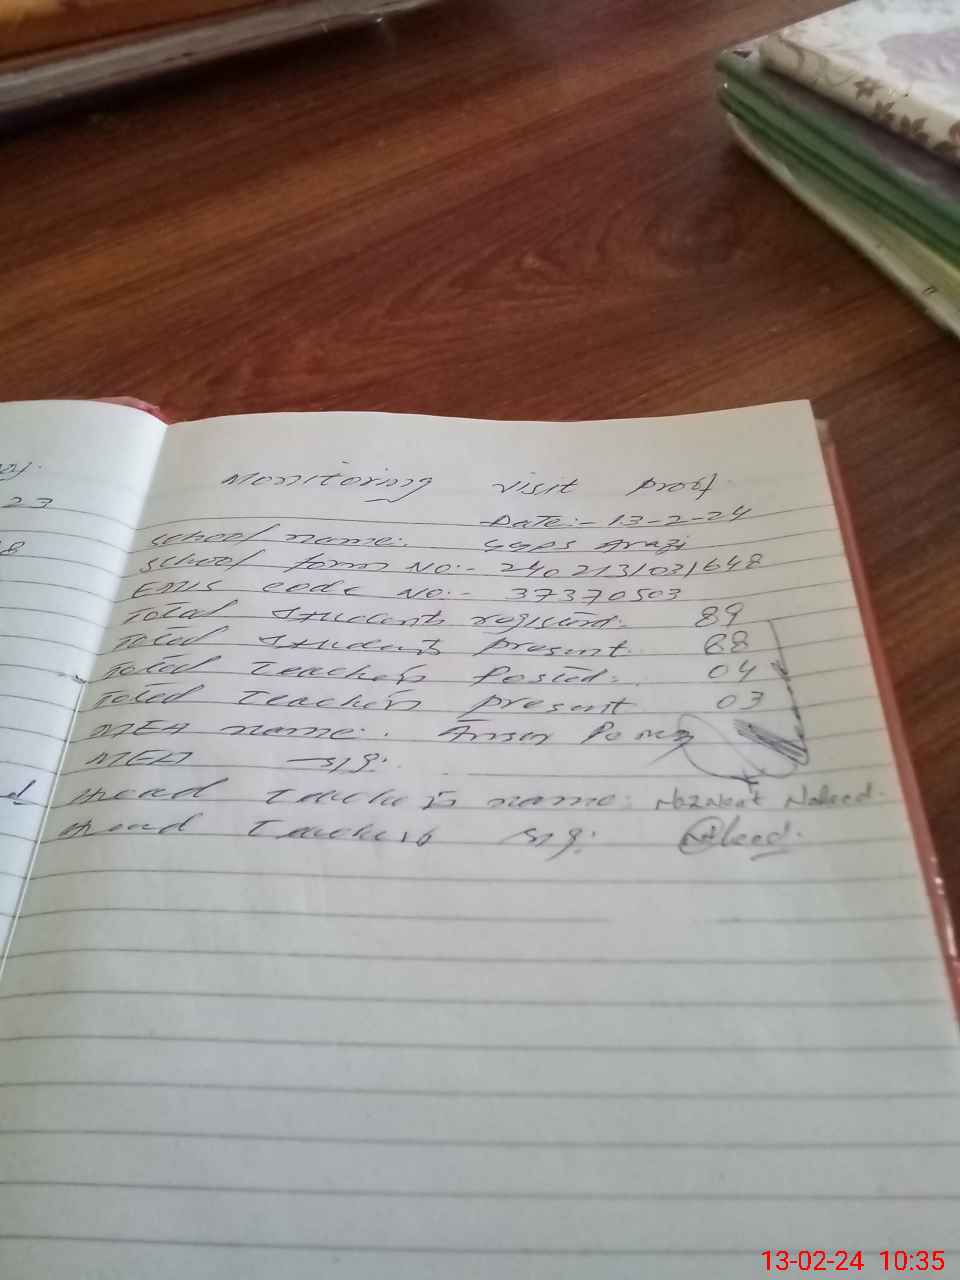 23
8
Monitoring visit proof
Date:- 13-2-24
School name: GGPS Arazi
School form No:- 2402131031648
EMIS code No:- 37370503
Total Students registered: 89
Total Students present 88
Total Teachers Posted: 04
Total Teachers present 03
MEA name:
MEA sig:
Head Teacher's name: Naheed.
Head Teachers sig:
13-02-24 10:35